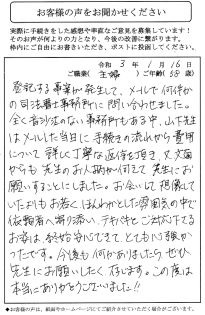 お客様の声をお聞かせください
実際に手続きをした感想や率直なご意見を募集しています!
そのお声が何よりの力となり、今後の改善に繋がります。
枠内にご自由にお書きいただき、ポストに投函してください。
令和 3年 1月 16日
ご職業( 主婦 )ご年齢( 58 歳)
登記する事案が発生して、メールで何件か
の司法書士事務所に問い合わせました。
全く音沙汰のない事務所もある中、山下先生
はメールした当日に手続きの流れから費用
について詳しく丁寧な返信を頂き、又文面
からも先生のお人柄が伺えて先生にお
願いすることにしました。お会いして想像して
いたよりもお若く、ほんわかとした雰囲気の中で
依頼者へ寄り添い、テキパキとご対応下さる
お姿は終始安心できて、とても心強かっ
たです。今後も何かありましたらぜひ
先生にお願いしたく存じます。この度は
本当にありがとうございました!!
◆お客様の声は、紙面やホームページにてご紹介させていただく場合がございます。